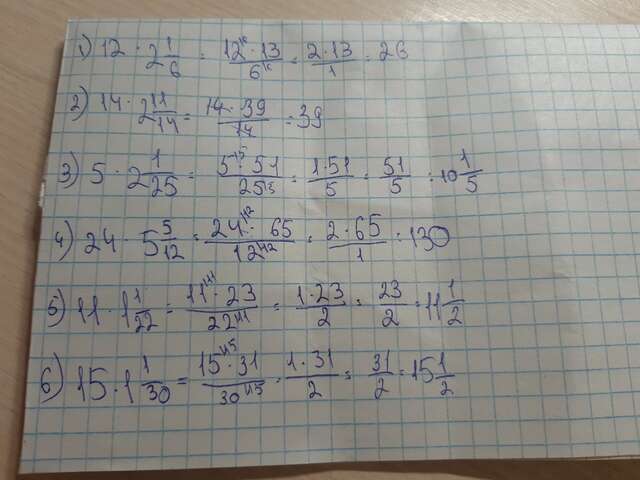 1) 12 · 2 1/6 = 12 · 13 / 6 = 2 · 13 / 1 = 26
2) 14 · 2 11/14 = 14 · 39 / 14 = 39
3) 5 · 2 1/25 = 5 · 51 / 25 = 1 · 51 / 5 = 51/5 = 10 1/5
4) 24 · 5 5/12 = 24 · 65 / 12 = 2 · 65 / 1 = 130
5) 11 · 1 1/22 = 11 · 23 / 22 = 1 · 23 / 2 = 23/2 = 11 1/2
6) 15 · 1 1/30 = 15 · 31 / 30 = 1 · 31 / 2 = 31/2 = 15 1/2